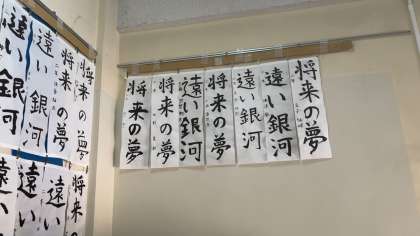 遠い銀河
遠い銀河
将来の夢
将来の夢
遠い
遠い
将来の
将来の夢
将来の夢
遠い銀河
将来の夢
遠い銀河
遠い銀河
将来の夢